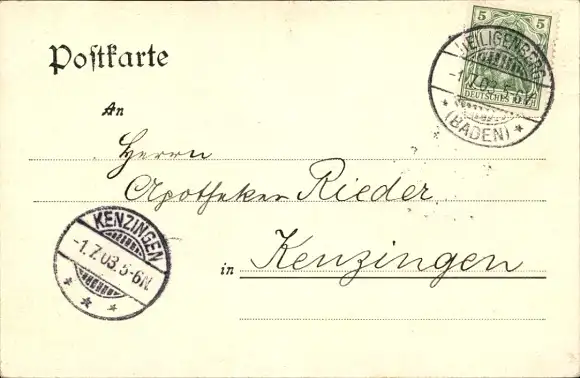 Postkarte
5 5
DEUTSCHES REICH
HEILIGENBERG
-1.7.03.5-6N.
* (BADEN) *
An
Herrn
Apotheker Rieder
in Kenzingen
KENZINGEN
-1.7.03.5-6N.
* * *